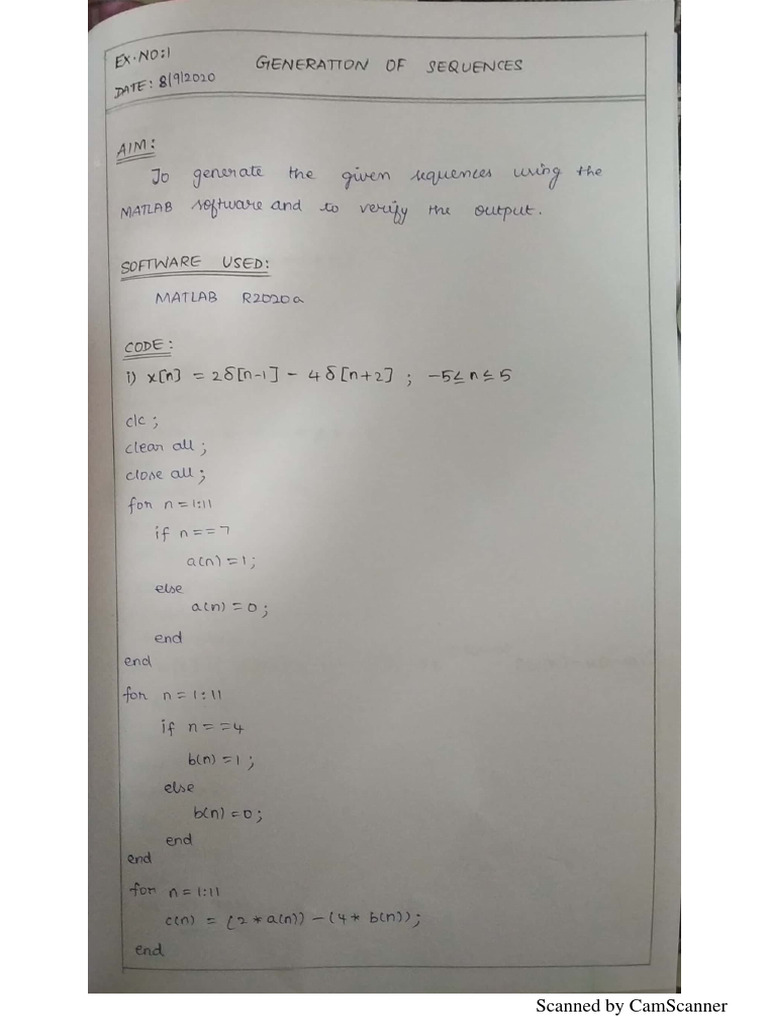 EX.NO:1
GENERATION OF SEQUENCES
DATE: 8/9/2020
AIM:
To generate the given sequences using the
MATLAB software and to verify the output.
SOFTWARE USED:
MATLAB R2020a
CODE:
i) x[n] = 2δ[n-1] - 4δ[n+2] ; -5≤n≤5
clc ;
clear all ;
close all ;
for n=1:11
if n==7
a(n)=1;
else
a(n)=0;
end
end
for n=1:11
if n==4
b(n)=1;
else
b(n)=0;
end
end
for n=1:11
c(n) = (2*a(n))-(4*b(n));
end
Scanned by CamScanner